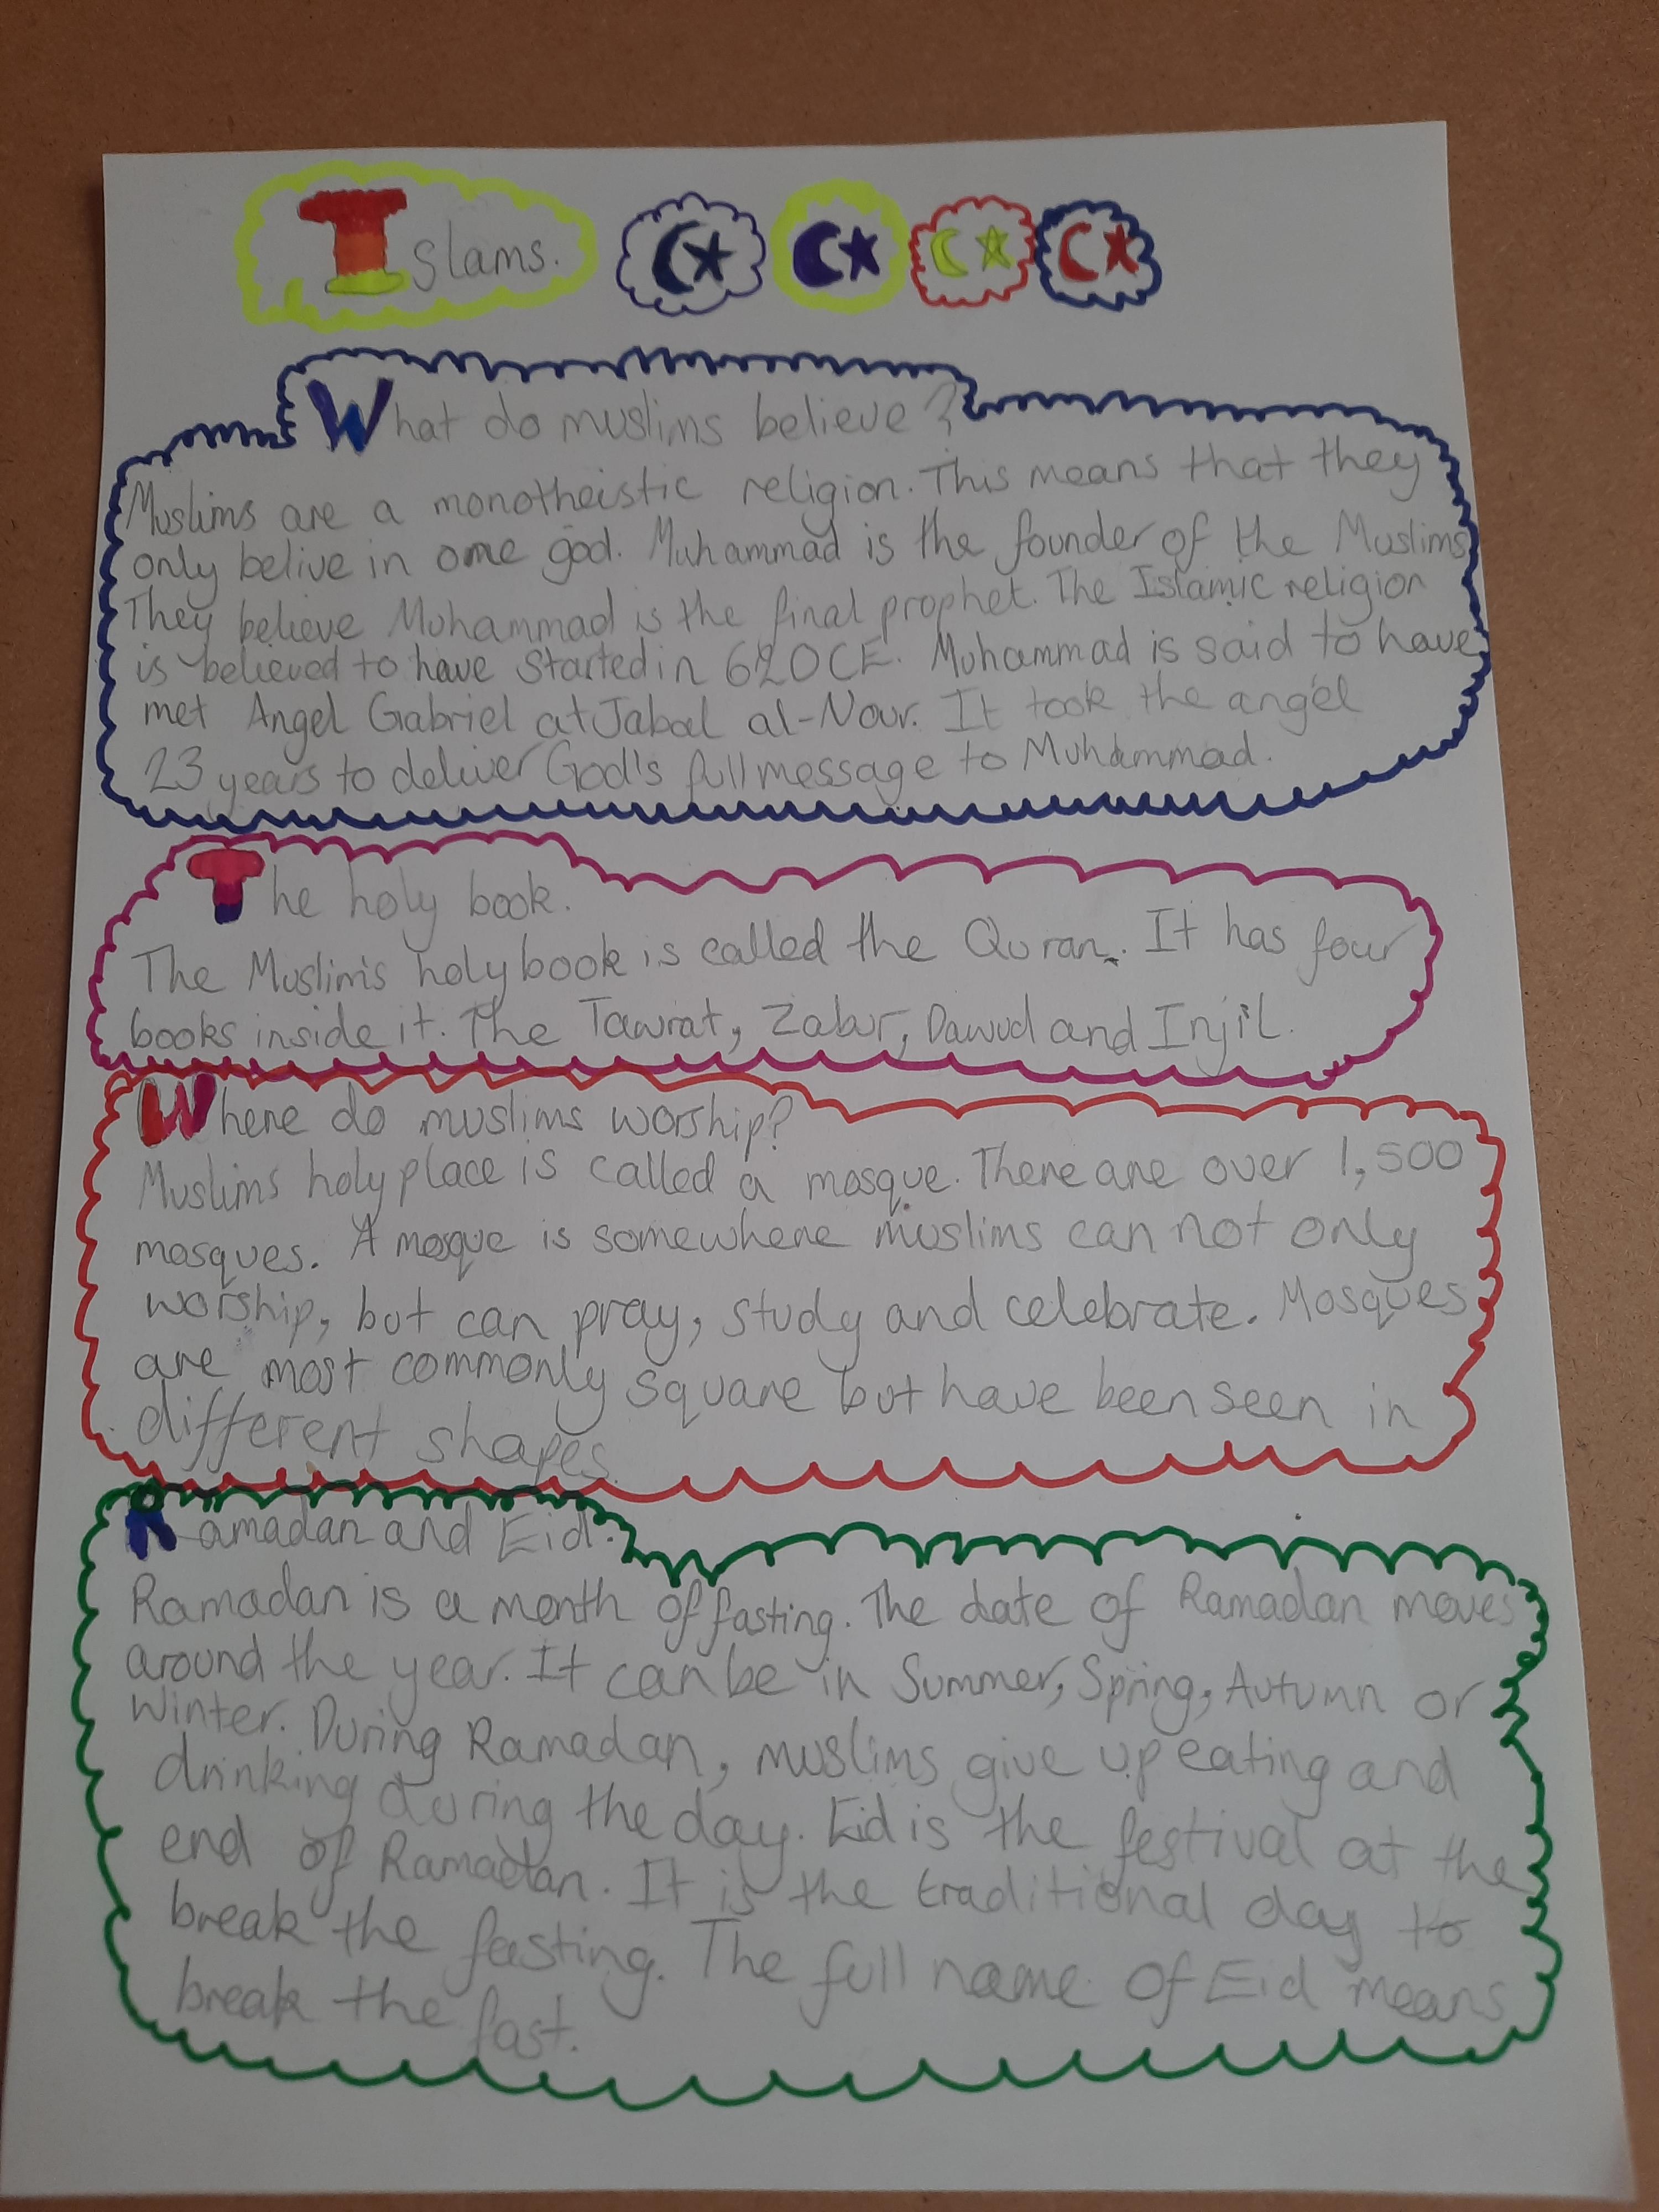 Islams.
What do muslims believe?
Muslims are a monotheistic religion. This means that they
only belive in one god. Muhammad is the founder of the Muslims
They believe Muhammad is the final prophet. The Islamic religion
is believed to have started in CE. Muhammad is said to have
met Angel Gabriel at Jabal al-Nour. It took the angel
23 years to deliver God's full message to Muhammad.
The holy book.
The Muslim's holy book is called the Quran. It has four
books inside it. The Tawrat, Zabur, Dawud and Injil.
Where do muslims worship?
Muslims holy place is called a mosque. There are over 1,500
mosques. A mosque is somewhere muslims can not only
worship, but can pray, study and celebrate. Mosques
are most commonly square but have been seen in
different shapes.
Ramadan and Eid.
Ramadan is a month of fasting. The date of Ramadan moves
around the year. It can be in Summer, Spring, Autumn or
Winter. During Ramadan, muslims give up eating and
drinking during the day. Eid is the festival at the
end of Ramadan. It is the traditional day to
break the fasting. The full name of Eid means
break the fast.